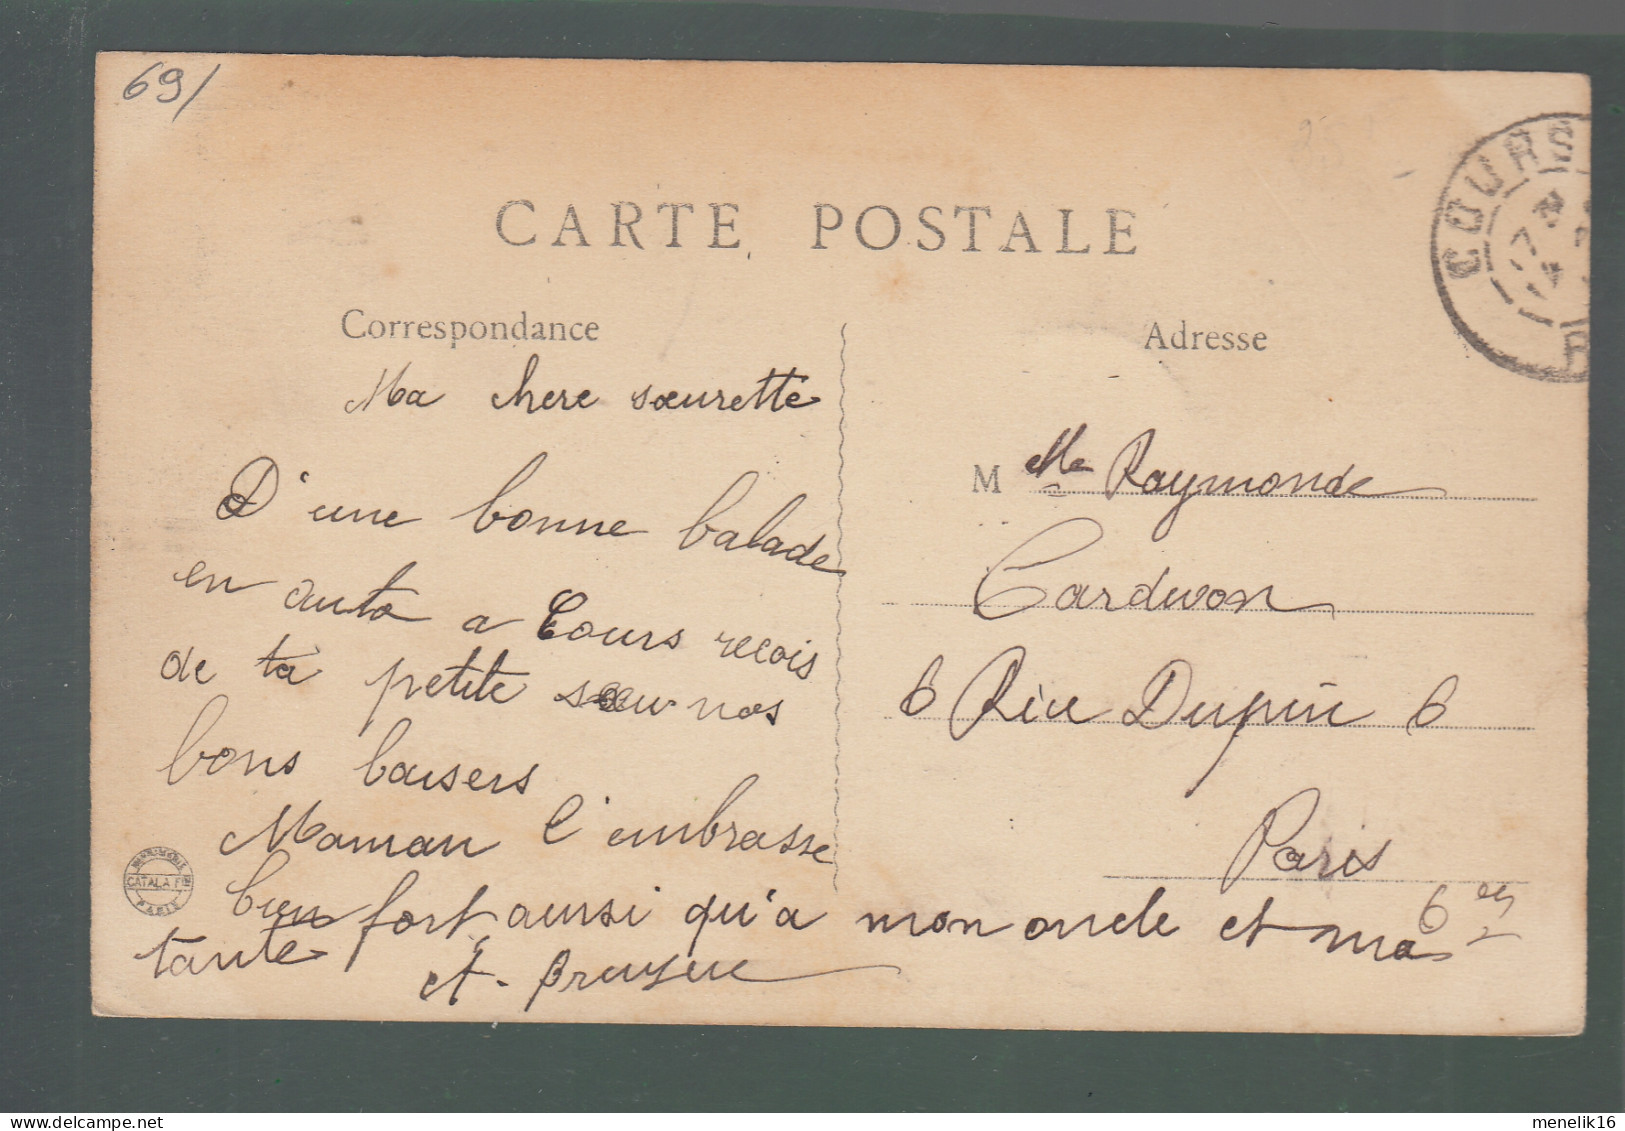 69/
CARTE POSTALE
COURS
Correspondance
Adresse
Ma chere sœurette
D'une bonne balade
en auto a Cours recois
de ta petite sœur nos
bons baisers
Maman t'embrasse
bien fort ainsi qu'a mon oncle et ma
tante
M elle Raymonde
Cardwon
6 Rue Dupin 6
Paris
6
IMPRIMERIE
CATALA Fres
PARIS
menelik16